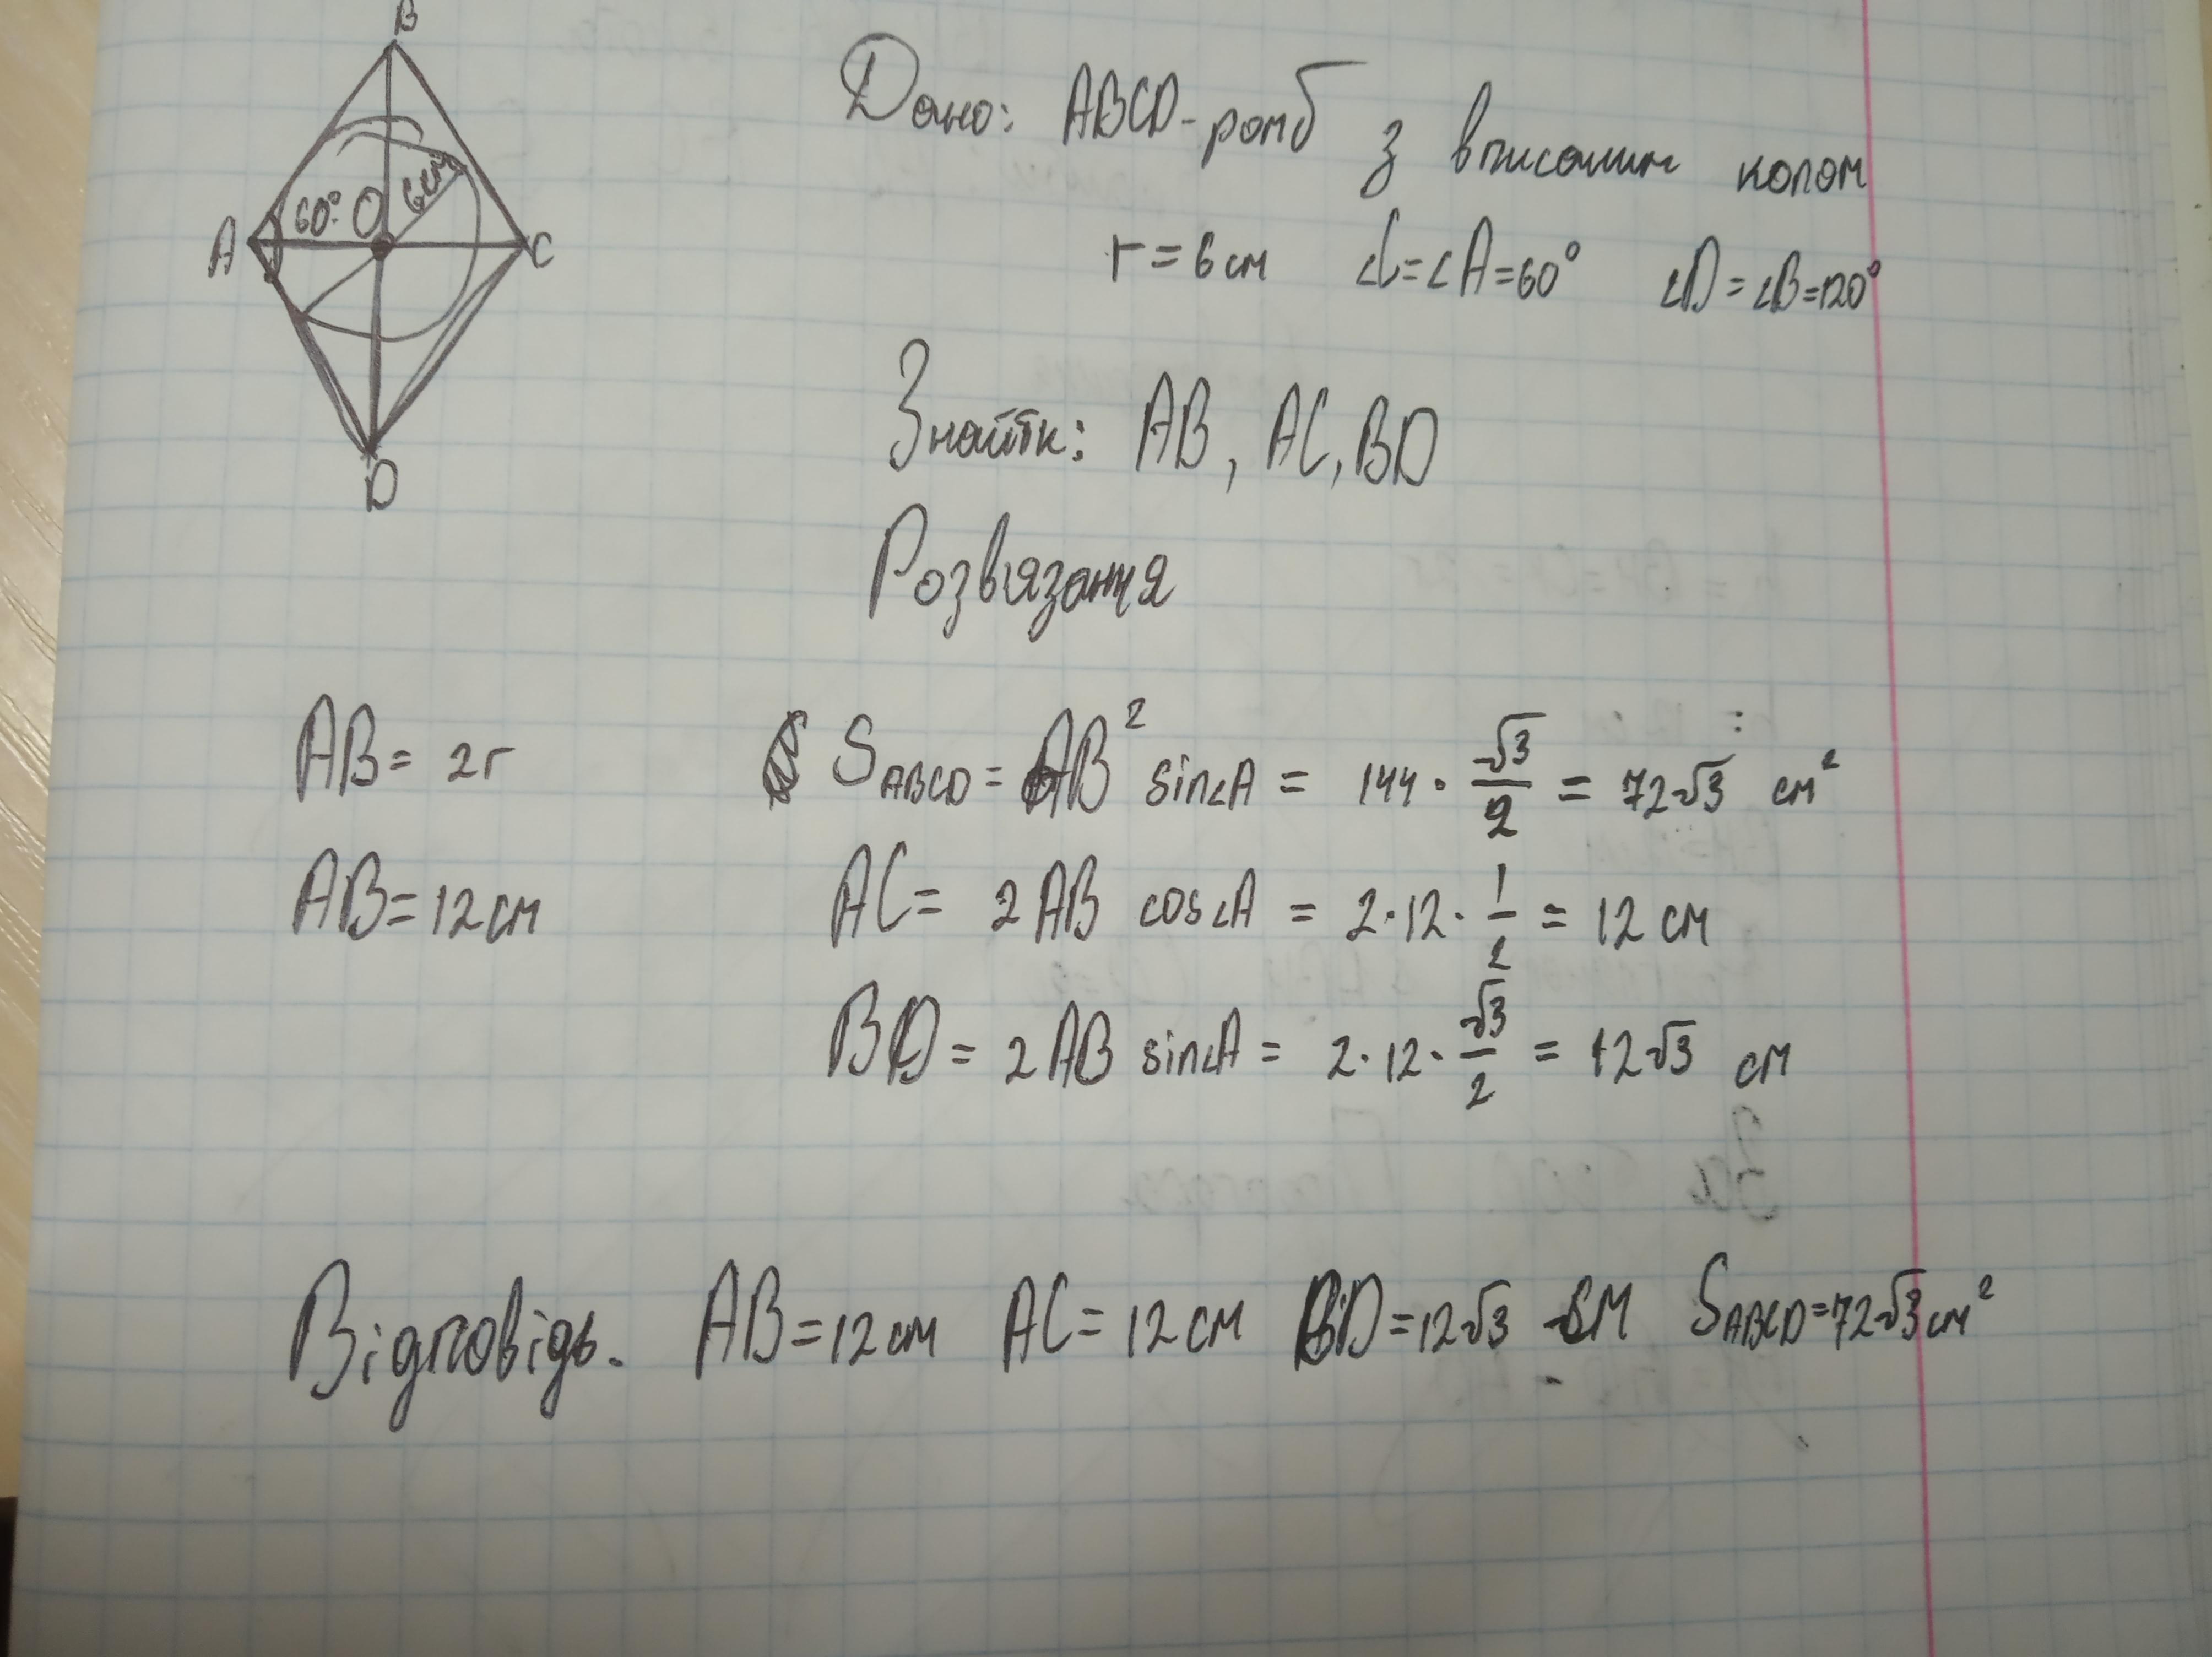 B
Дано: ABCD-ромб з вписаним колом
60° O 6см
A C
r = 6 см ∠C=∠A=60° ∠D=∠B=120°
D
Знайти: AB, AC, BD
Розв'язання
AB = 2r S ABCD = AB² sin∠A = 144 · √3/2 = 72√3 см²
AB = 12 см AC = 2 AB cos∠A = 2·12·1/2 = 12 см
BD = 2 AB sin∠A = 2·12·√3/2 = 12√3 см
Відповідь. AB = 12 см AC = 12 см BD = 12√3 см S ABCD = 72√3 см²